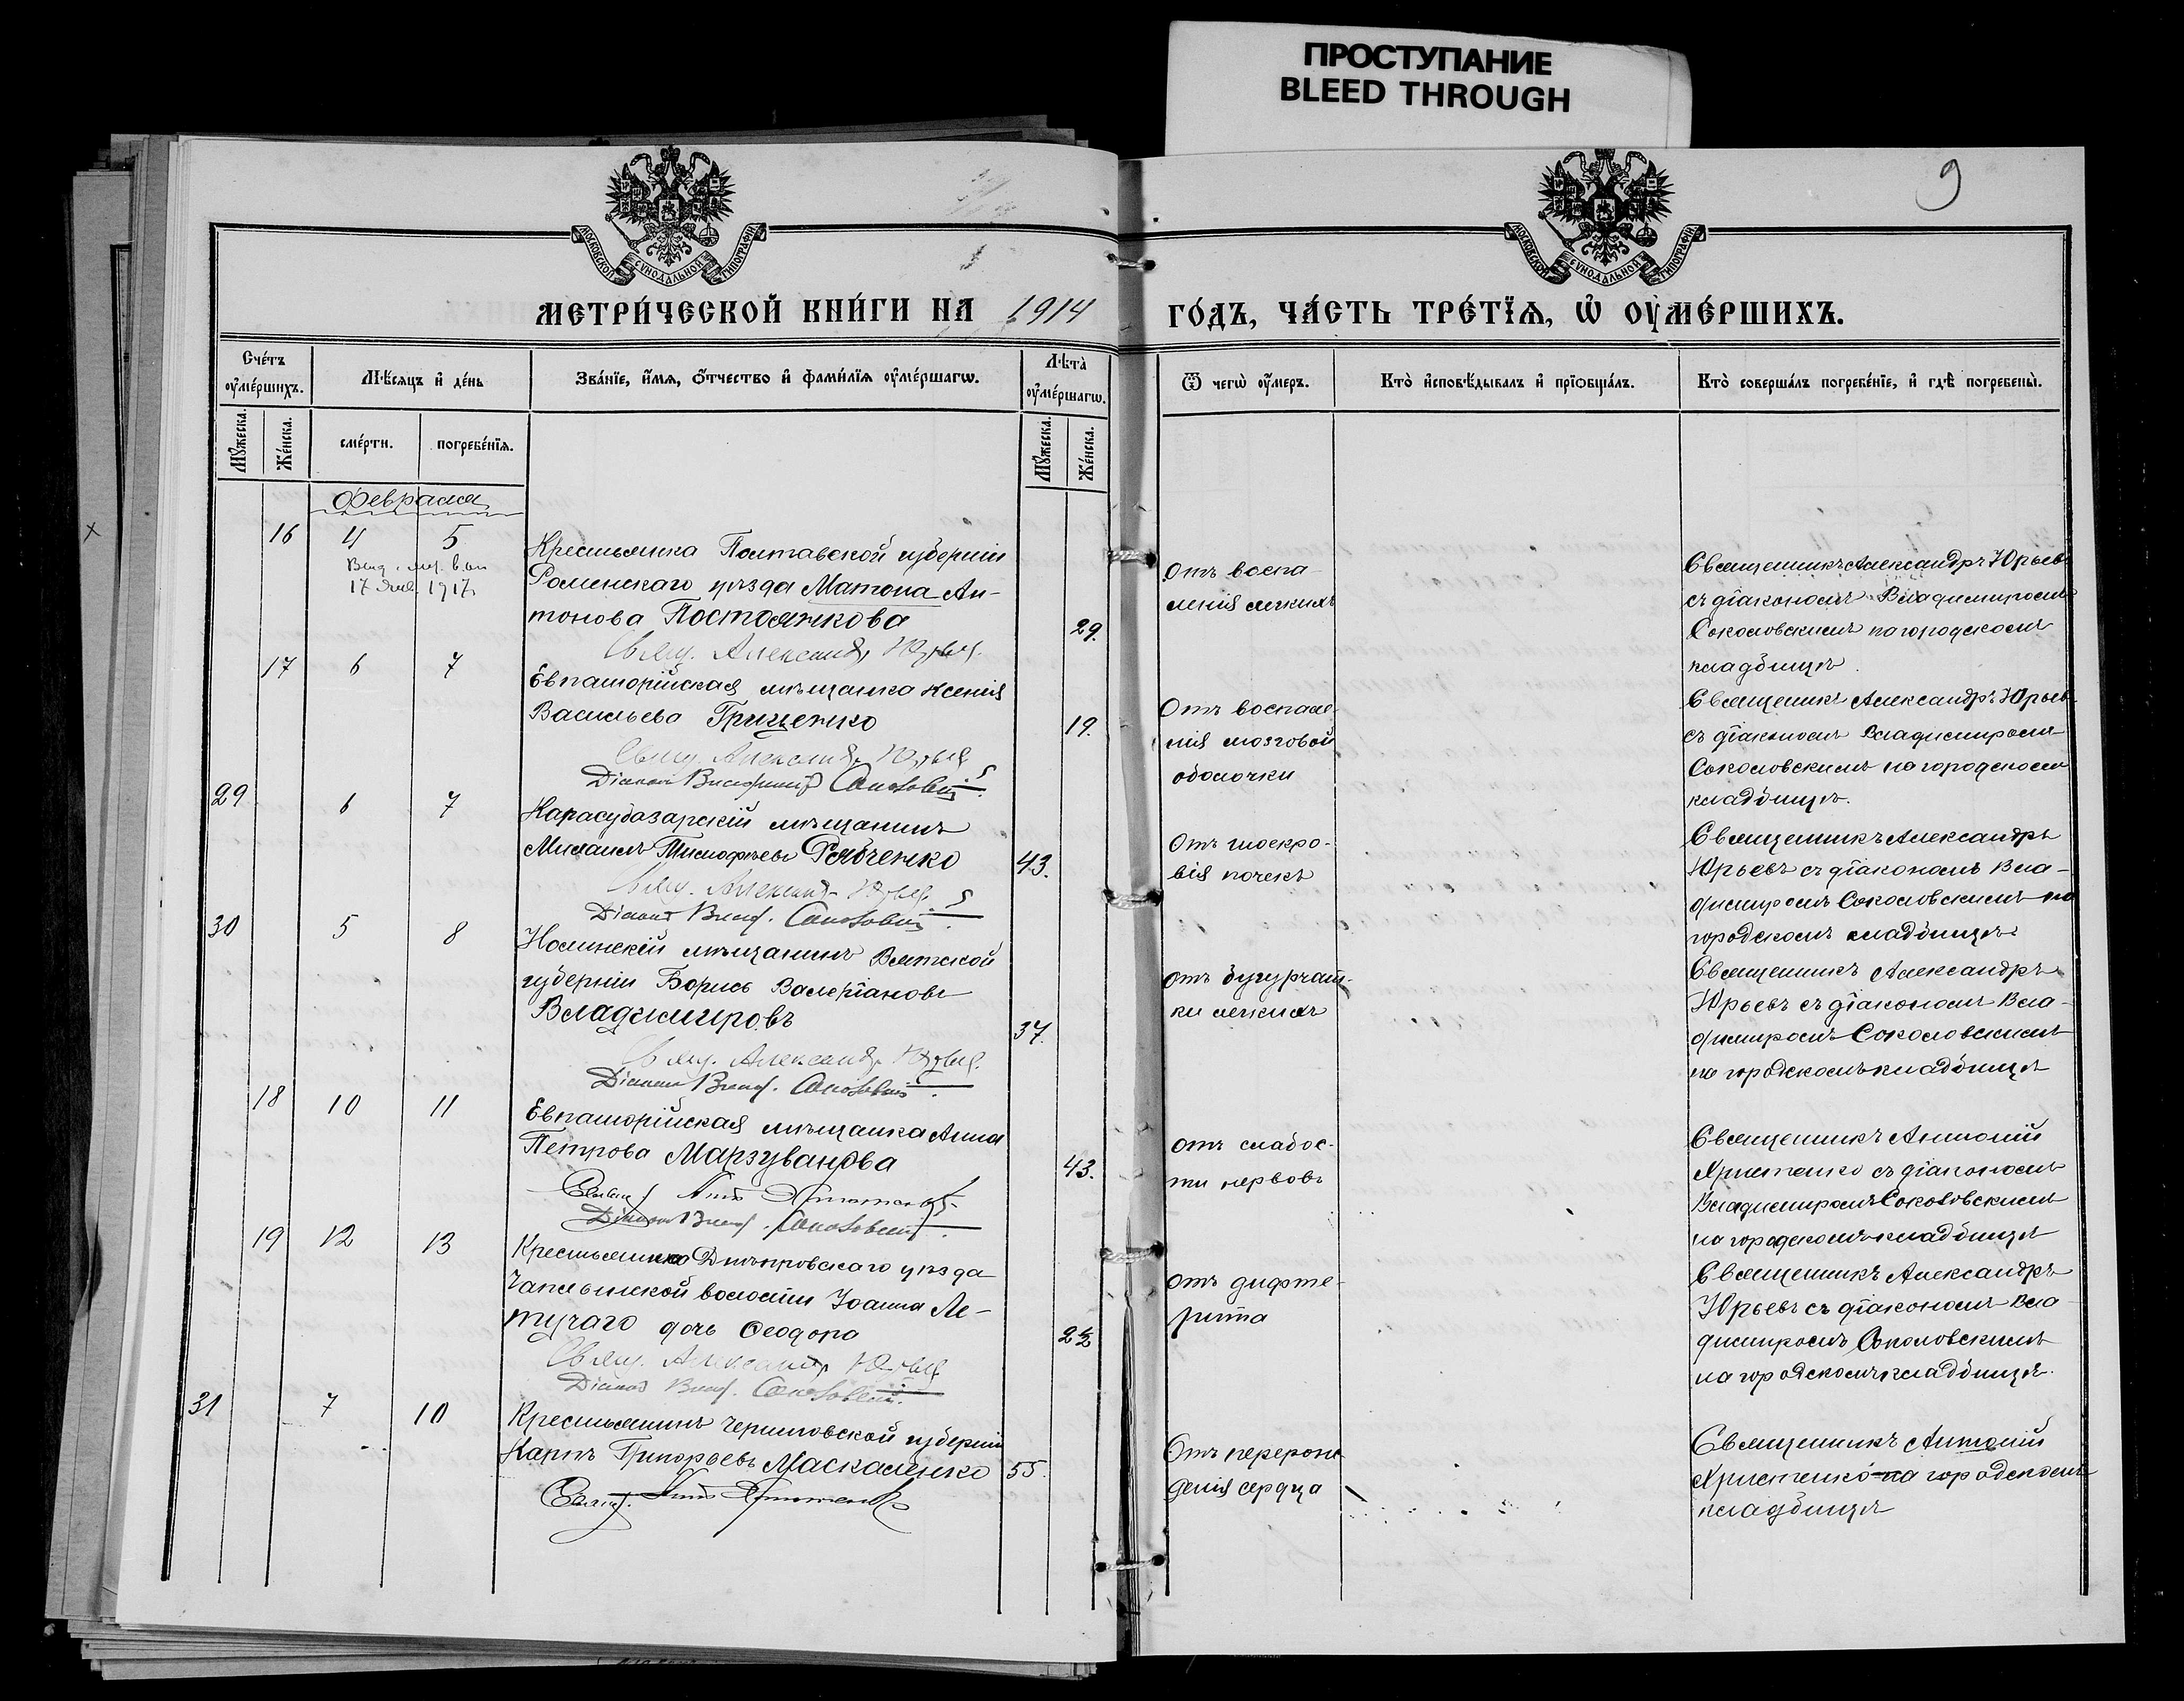 ПРОСТУПАНИЕ
BLEED THROUGH
9
МОСКОВСКОЙ СѴНОДАЛЬНОЙ ТИПОГРАФІИ
МОСКОВСКОЙ СѴНОДАЛЬНОЙ ТИПОГРАФІИ
МЕТРИ́ЧЕСКОЙ КНИ́ГИ НА 1914 ГО́ДЪ, ЧА́СТЬ ТРЕ́ТЇѦ, Ѡ҆ ОУ҆МЕ́РШИХЪ.
Сче́тъ оу҆ме́ршихъ.
Мѣ́сяцъ и҆ де́нь
Зва́нїе, и҆́мѧ, ѻ҆́тчество и҆ фами́лїѧ оу҆ме́ршагѡ.
Лѣ́та оу҆ме́ршагѡ.
Ѿ чегѡ̀ оу҆́меръ.
Кто̀ и҆сповѣ́дывалъ и҆ прїѡбща́лъ.
Кто̀ соверша́лъ погребе́нїе, и҆ гдѣ̀ погребены̀.
Мꙋ́жеска.
Же́нска.
сме́рти.
погребе́нїѧ.
Мꙋ́жеска.
Же́нска.
Февраля
16 4 5
17 янв. 1917
Крестьянка Полтавской губерніи
Роменскаго уѣзда Матрона Ан-
тонова Постолнкова
29.
Свящ. Александръ Юрьев.
Отъ воспа-
ленія легкихъ
Священникъ Александръ Юрьевъ
съ діакономъ Владимиромъ
Соколовскимъ на городскомъ
кладбищѣ.
17 6 7
Евпаторійская мѣщанка Ксенія
Васильева Грищенко
19.
Свящ. Александръ Юрьев
Діаконъ Владимиръ Соколовскій
Отъ воспале
нія мозговой
оболочки
Священникъ Александръ Юрьев
съ діакономъ Владимиромъ
Соколовскимъ на городскомъ
кладбищѣ.
29 6 7
Карасубазарскій мѣщанинъ
Михаилъ Тимофѣевъ Рябченко
43.
Свящ. Александръ Юрьев.
Діаконъ Влад. Соколовскій
Отъ гноекро-
вія почекъ
Священникъ Александръ
Юрьевъ съ діакономъ Вла-
димиромъ Соколовскимъ на
городскомъ кладбищѣ
30 5 8
Нолинскій мѣщанинъ Вятской
губерніи Борисъ Валеріановъ
Владимировъ
37.
Свящ. Александръ Юрьев.
Діаконъ Влад. Соколовскій.
отъ бугурчат-
ки легкихъ
Священникъ Александръ
Юрьевъ съ діакономъ Вла-
димиромъ Соколовскимъ
на городскомъ кладбищѣ
18 10 11
Евпаторійская мѣщанка Анна
Петрова Марзуванова
43.
Свящ. Ант. Христенко
Діаконъ Влад. Соколовскій.
отъ слабос-
ти нервовъ
Священникъ Антоній
Христенко съ діакономъ
Владимиромъ Соколовскимъ
на городскомъ кладбищѣ
19 12 13
Крестьянина Днѣпровскаго уѣзда
Чаплынской волости Іоанна Ле-
тучаго дочь Ѳеодора
2½
Свящ. Александръ Юрьев
Діаконъ Влад. Соколовскій.
Отъ дифте-
рита
Священникъ Александръ
Юрьевъ съ діакономъ Вла-
димиромъ Соколовскимъ
на городскомъ кладбищѣ.
31 7 10
Крестьянинъ Черниговской губерніи
Карпъ Григорьевъ Маскаленко
55.
Свящ. Ант. Христенко
Отъ перерож-
денія сердца
Священникъ Антоній
Христенко на городскомъ
кладбищѣ